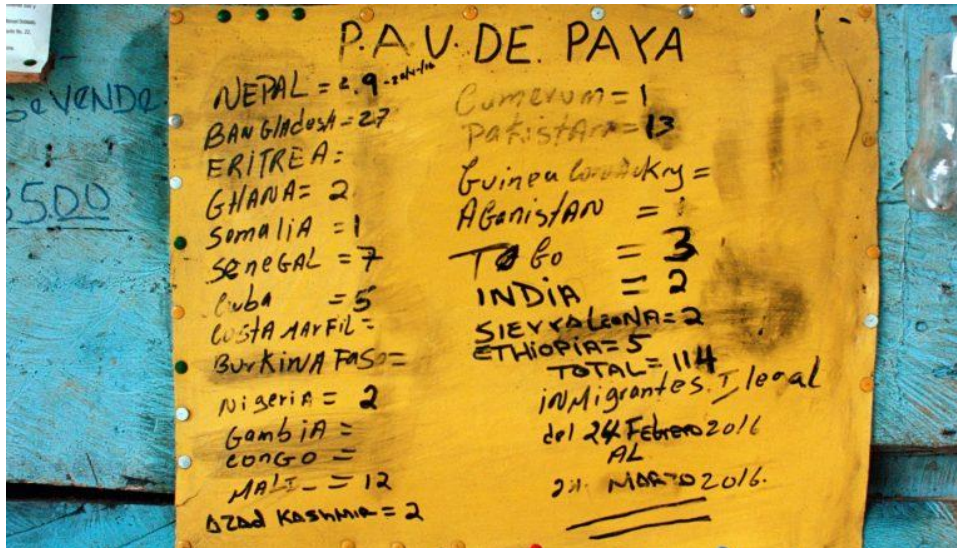 P.A.V. DE. PAYA
NEPAL = 29
BANGlAdesH = 27
ERITREA =
GHANA = 2
SomaliA = 1
SeneGAL = 7
Cuba = 5
COSTA MArFiL =
BUrKiNA FASO =
NigeriA = 2
GambiA =
CONGO =
MALI - = 12
AZAd KASHMIR = 2
Camerum = 1
PaKistAn = 13
Guinea Conackry =
AGanistAN = 1
TOGo = 3
INDIA = 2
SIErrA LeoNA = 2
ETHiOPiA = 5
TOTAL = 114
iNMigrantes. Ilegal
del 24 Febrero 2016
AL
MARTO 2016.
SeVENDe
3500